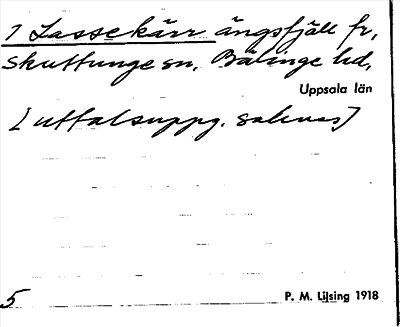 1 Lassekärr ängsfjäll fr,
Skuttunge sn, Bälinge hd,
Uppsala län
[uttalsuppg. saknas]
5 P. M. Liljsing 1918